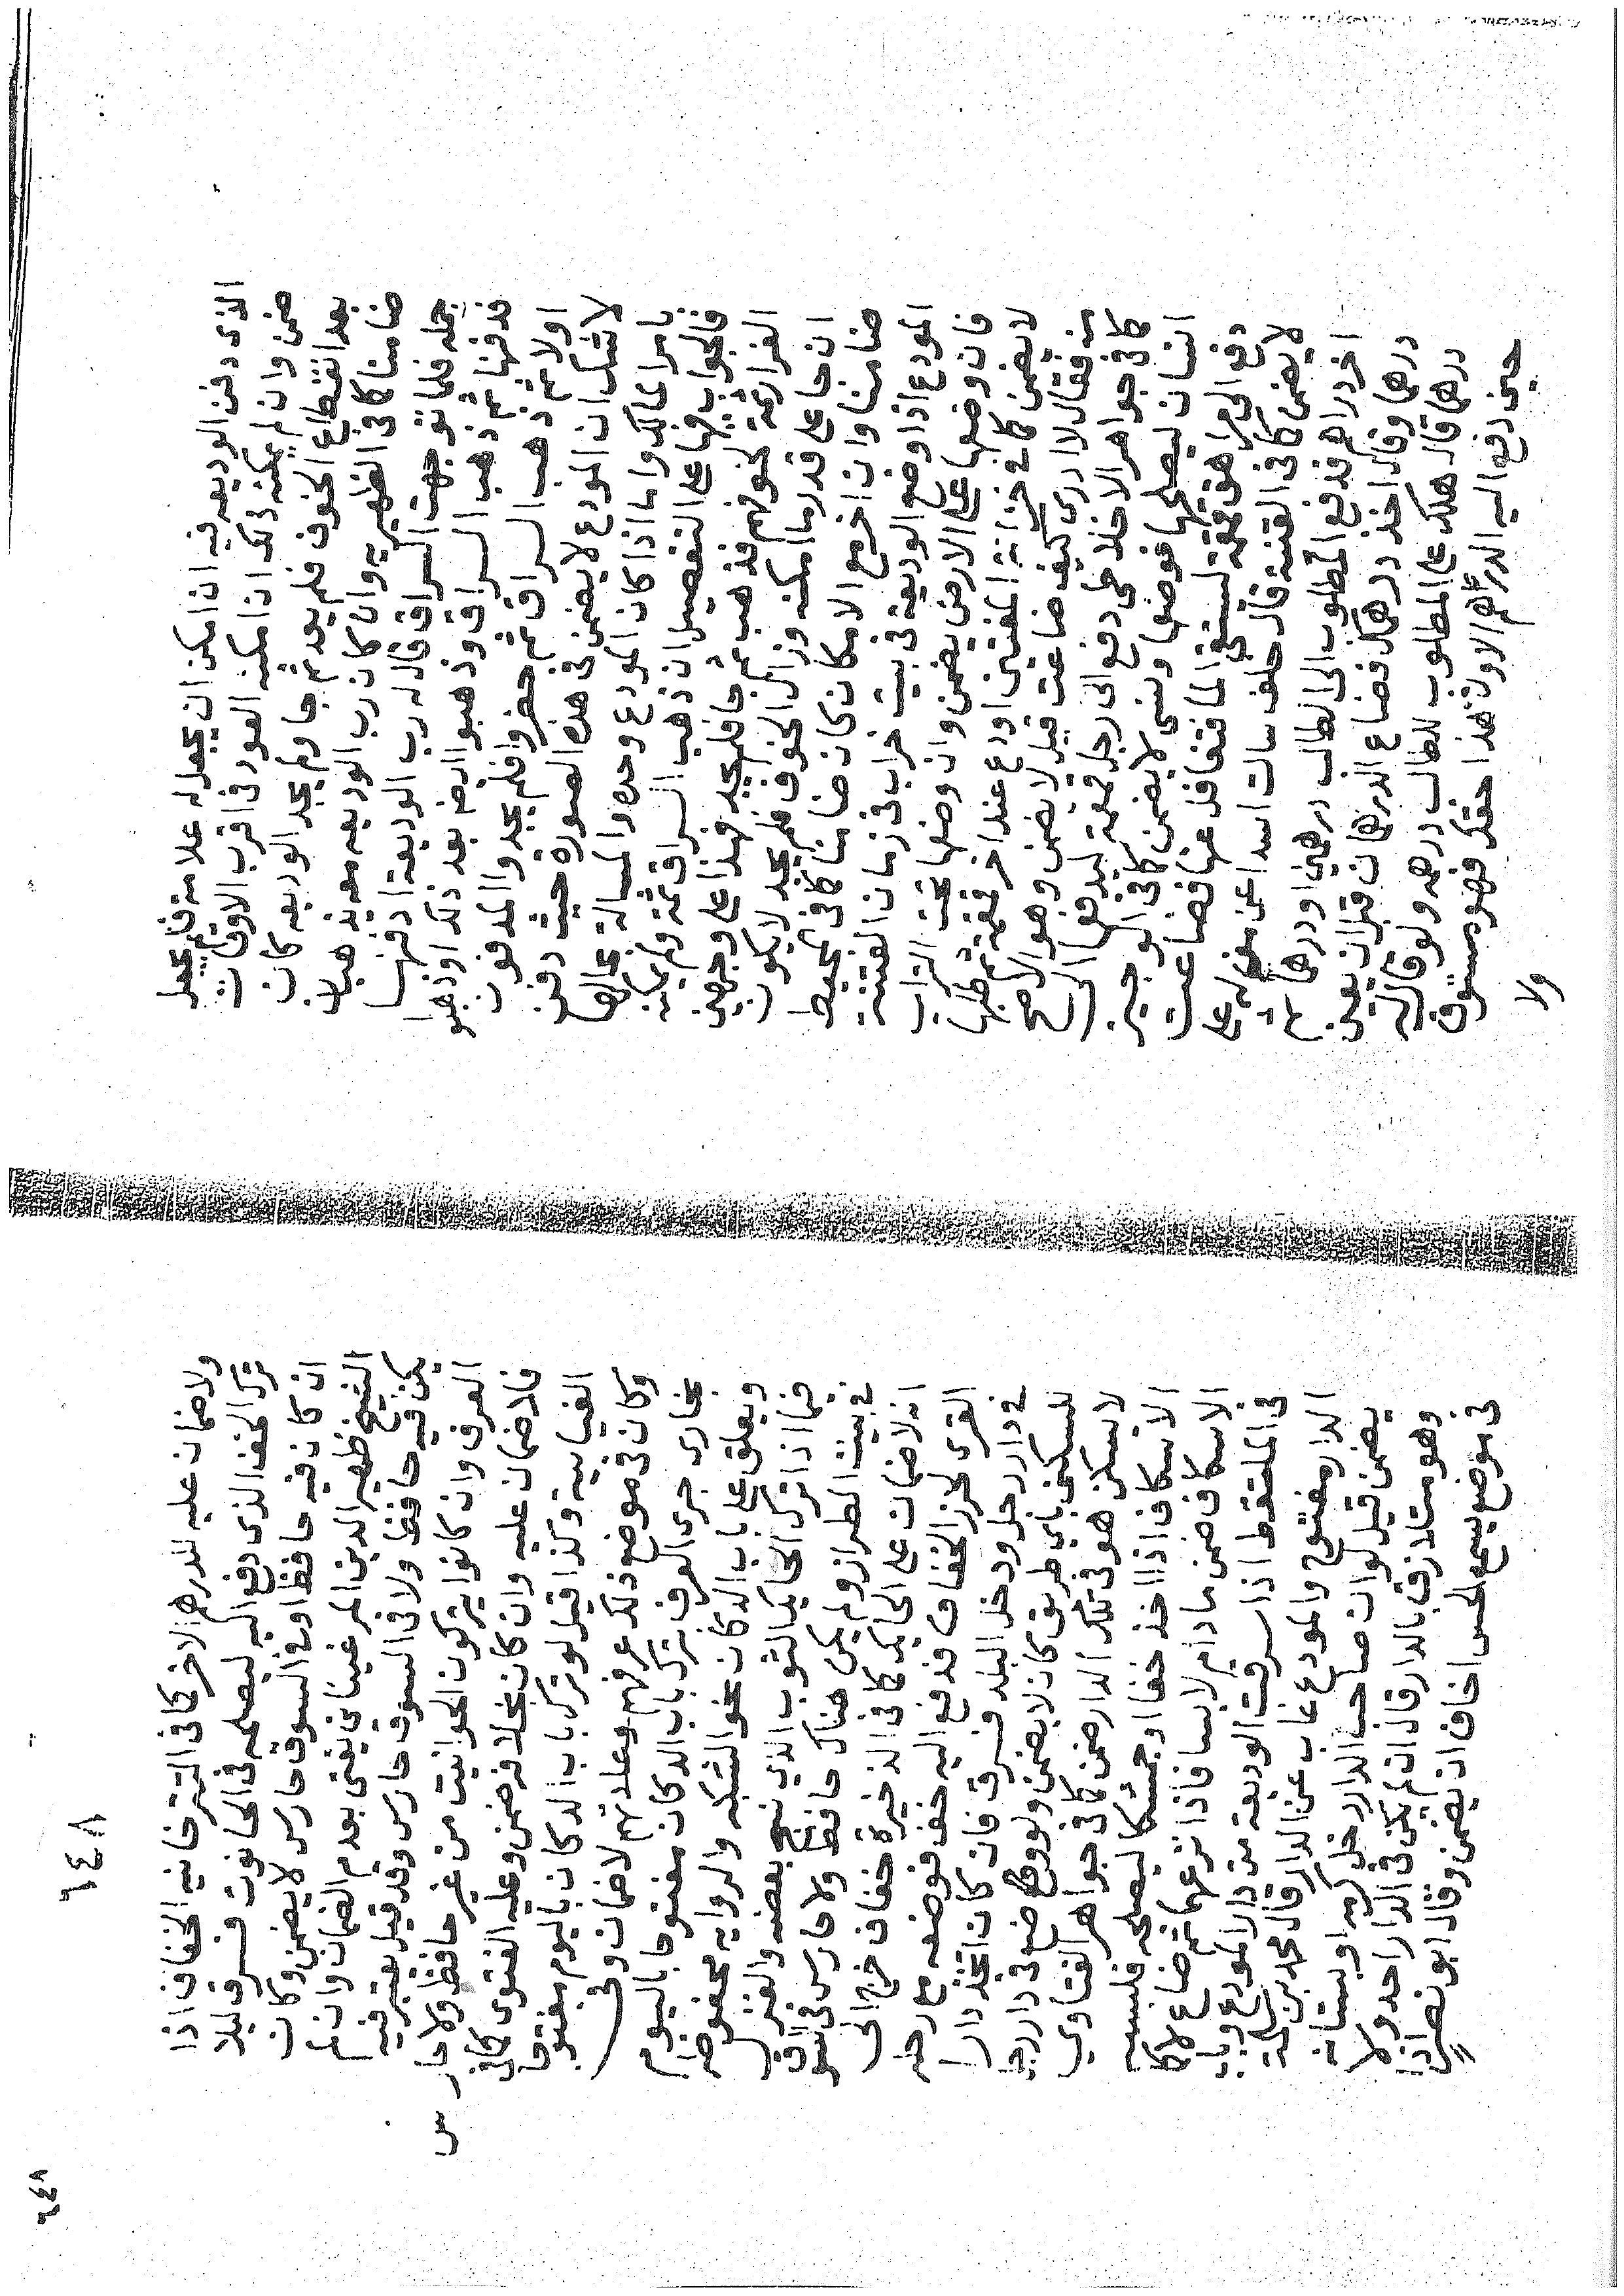 الذى دفن الوديعه فيه ان امكن ان يجعل له علامة فلم يجعل
ضمن وان لم يمكنه ذلك ان امكنه العود فى اقرب الاوقات
بعد انقطاع الخوف فلم يعد ثم جا ولم يجد الوديعه كان
ضامنا كما فى الظهيريه وان كان رب الوديعه معه يذهبا
جمله فلما توجهت السراق قال له رب الوديعة ادفنها
فدفنها ثم ذهب السراق وذهبوا ايضم بعد ذلك او ذهبوا
اولا ثم ذهب السراق ثم حضروا فلم يجدوا المدفون
لا شك ان المودع لا يضمن فى هذه الصورة حيث دفن
بامر المالك واما اذا كان المودع وحده والمسالة بحالها
فالجواب فيها على التفصيل ان ذهب السراق ثمة ولم يمكنه
الفرار ثمة لخوفهم فذهب ثم جا فلم يجد فهذا على وجهين
ان جا على قدر ما امكنه وزال الخوف فلم يجد لا يكون
ضامنا وان اخر مع الامكان كان ضامنا كما فى المحيط
المودع اذا وضع الوديعة فى بيت خراب فى زمان الفتنة
فان وضعها على الارض يضمن وان وضعها تحت التراب
لا يضمن كما فى خزانة المفتين اودع عند اخر قمقمة ثم طلبها
منه فقال لا ادرى كيف ضاعت قيل لا يضمن وهو الاصح
كما فى جواهر الاخلاطى دفع الى رجل قمقمة ليدفعها الى
انسان ليصلحها فوضعها ونسى لا يضمن كما فى الوجيز
دفع الى مراهق قمقمة ليستقى الما فتغافل عنها فضاعت
لا يضمن كما فى القنية قال خلف سالت اسدا عن من له على
اخر دراهم فدفع المطلوب الى الطالب درهمين او درهما ثم
درهما وقال اخذ درهمك فضاع الدرهمان قبل ان يعين
درهما قال هلك على المطلوب للطالب درهمه ولو قال له
حين دفع اليه الدرهم الاول هذا حقك فهو مستوف
ولا
٦٤٨
٦٤٨
ولا ضمان عليه للدرهم الاخر كما فى التترخانيه الخفاف اذا
ترك الخف الذى دفع اليه ليصلحه فى الحانوت فسرق ليلا
ان كان فيه حافظ او فى السوق حارس لا يضمن وكان
الشيخ ظهير الدين المرغينانى يفتى بعدم الضمان وان لم
يكن فيه حافظ ولا فى السوق حارس وقد قيل يعتبر فيه
العرف وان كانوا يتركون الحوانيت من غير حافظ ولا حارس
فلا ضمان عليه وان كان بخلافه ضمن وعليه الفتوى كما فى
الغياثية وكذا قيل لو ترك باب الدكان باليوم مفتوحا
وكان فى موضع ذلك عرفهم وعادتهم لا ضمان وفى
بخارى جرى العرف بترك باب الدكان مفتوحا باليوم
ويعلق على باب الدكان نحو الشبكه والروايه محفوضه
فيما اذا ترك الحايك الثوب الذى نسج بعضه والغزل
فى بيت الطراز ولم يكن هناك حافظ ولا حارس فى السوق
انه لا ضمان على الحايك كما فى الذخيرة خفاف خرج الى
القرى لخرز الخفاف فدفع اليه خف فوضعه مع رحله
فى دار رجل ودخل البلد فسرق فان كان اتخذ دارا
للسكنى باى طريق كان لا يضمن ولو وضع فى دار رجل
لا يسكن هو فى تلك الدار ضمن كما فى جواهر الفتاوي
الاسكاف اذا اخذ خفا او جمشكا ليصلحه فلبسه
الاسكاف ضمن ما دام لابسا فاذا نزعهما ثم ضاع لا كما
فى الملتقط اذا سرقت الوديعة من دار المودع وباب
الدار مفتوح والمودع غاب عن الدار قال محمد بن سلمة
يضمن قيل لو ان صاحب الدار دخل كرمه او بستانه
وهو متلازق بالدار قال ان لم يكن فى الدار احد ولا
فى موضع يسمع الحس اخاف ان يضمن وقال ابو نصر اذا